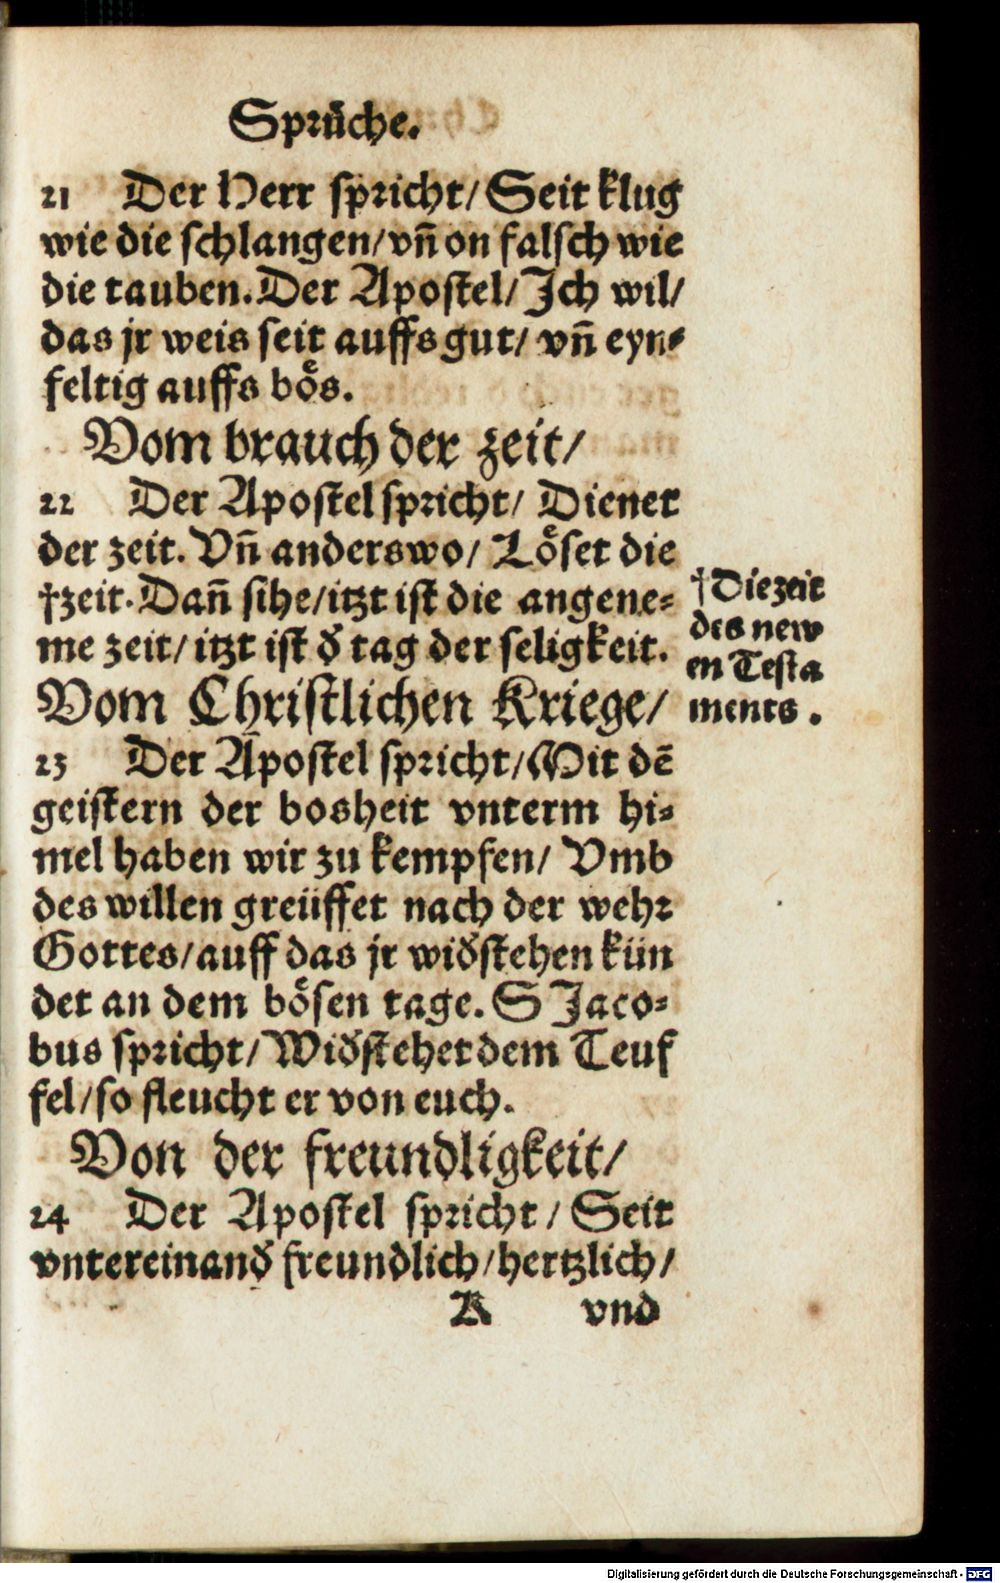 Sprůche.
21 Der Herr spricht/ Seit klug
wie die schlangen/ vn̄ on falsch wie
die tauben. Der Apostel/ Jch wil/
das jr weis seit auffs gut/ vn̄ eyn⸗
feltig auffs boͤs.
Vom brauch der zeit/
22 Der Apostel spricht/ Dienet
der zeit. Vn̄ anderswo/ Loͤset die
†zeit. Dan̄ sihe/ itzt ist die angene⸗
me zeit/ itzt ist ď tag der seligkeit.
†Die zeit
des new
en Testa
ments.
Vom Christlichen Kriege/
23 Der Apostel spricht/ Mit dē
geistern der bosheit vnterm hi⸗
mel haben wir zu kempfen/ Vmb
des willen greüffet nach der wehr
Gottes/ auff das jr wiďstehen kün
det an dem boͤsen tage. S Jaco⸗
bus spricht/ Wiďstehet dem Teuf
fel/ so fleucht er von euch.
Von der freundligkeit/
24 Der Apostel spricht/ Seit
vntereinanď freundlich/ hertzlich/
K vnd
Digitalisierung gefördert durch die Deutsche Forschungsgemeinschaft - DFG